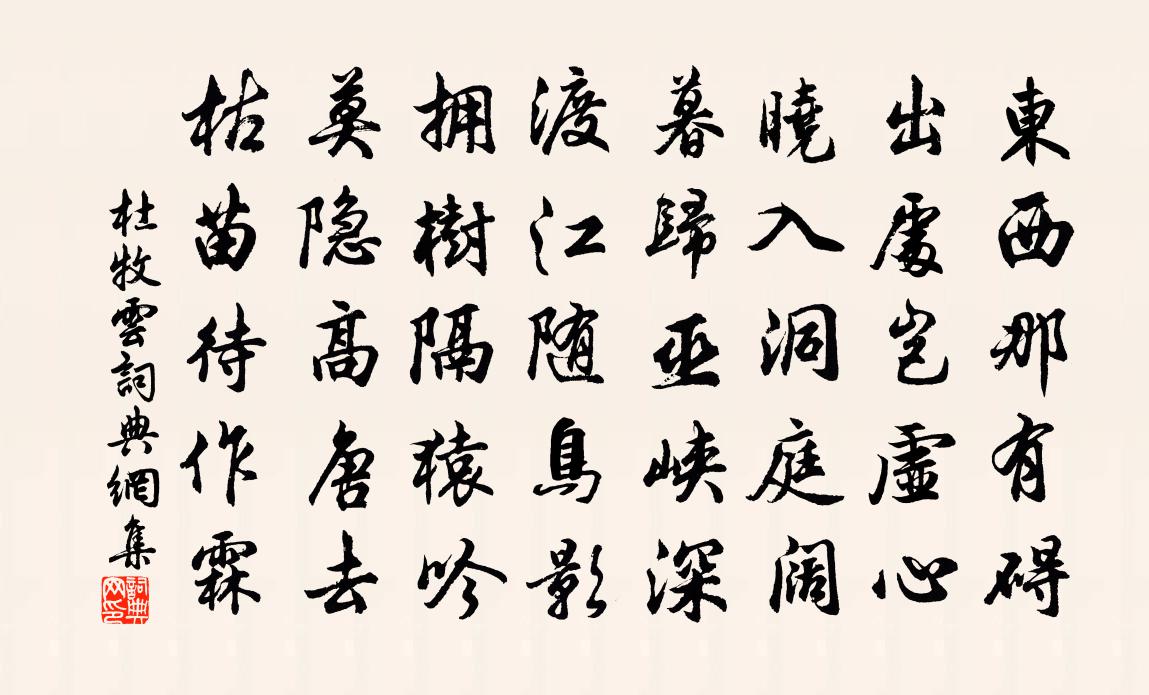 東西那有碍
出處豈虛心
曉入洞庭闊
暮歸巫峽深
渡江随鳥影
拥樹隔猿吟
莫隐高唐去
枯苗待作霖
杜牧雲詞典網集
詞典网印